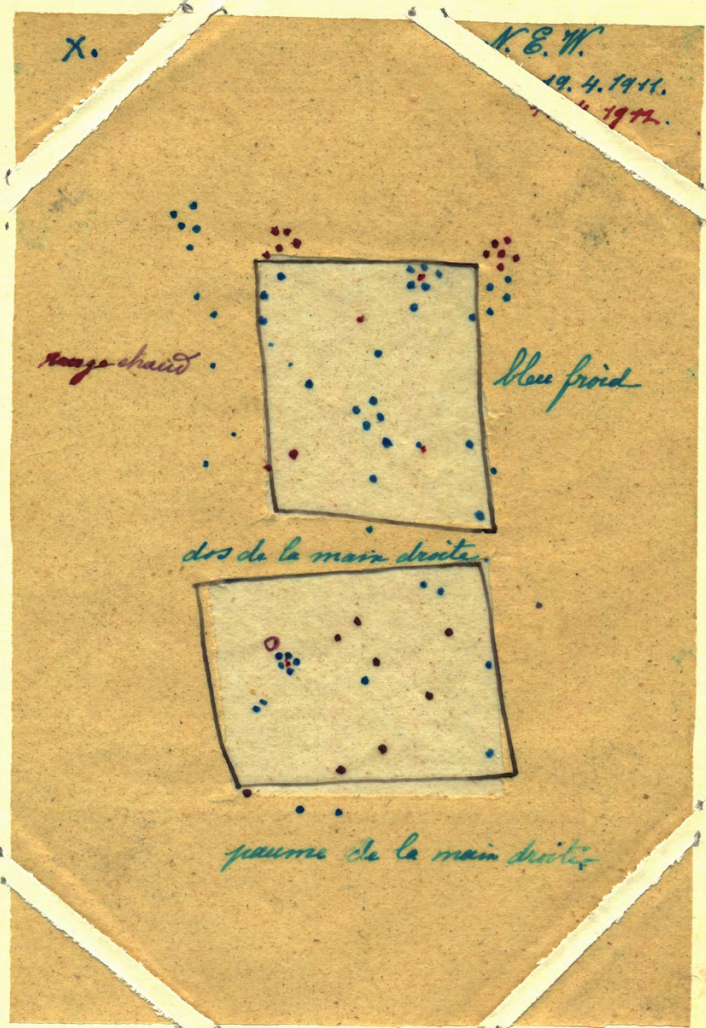 X.
N. E. W.
19. 4. 1911.
1912.
rouge chaud
bleu froid
dos de la main droite.
paume de la main droite